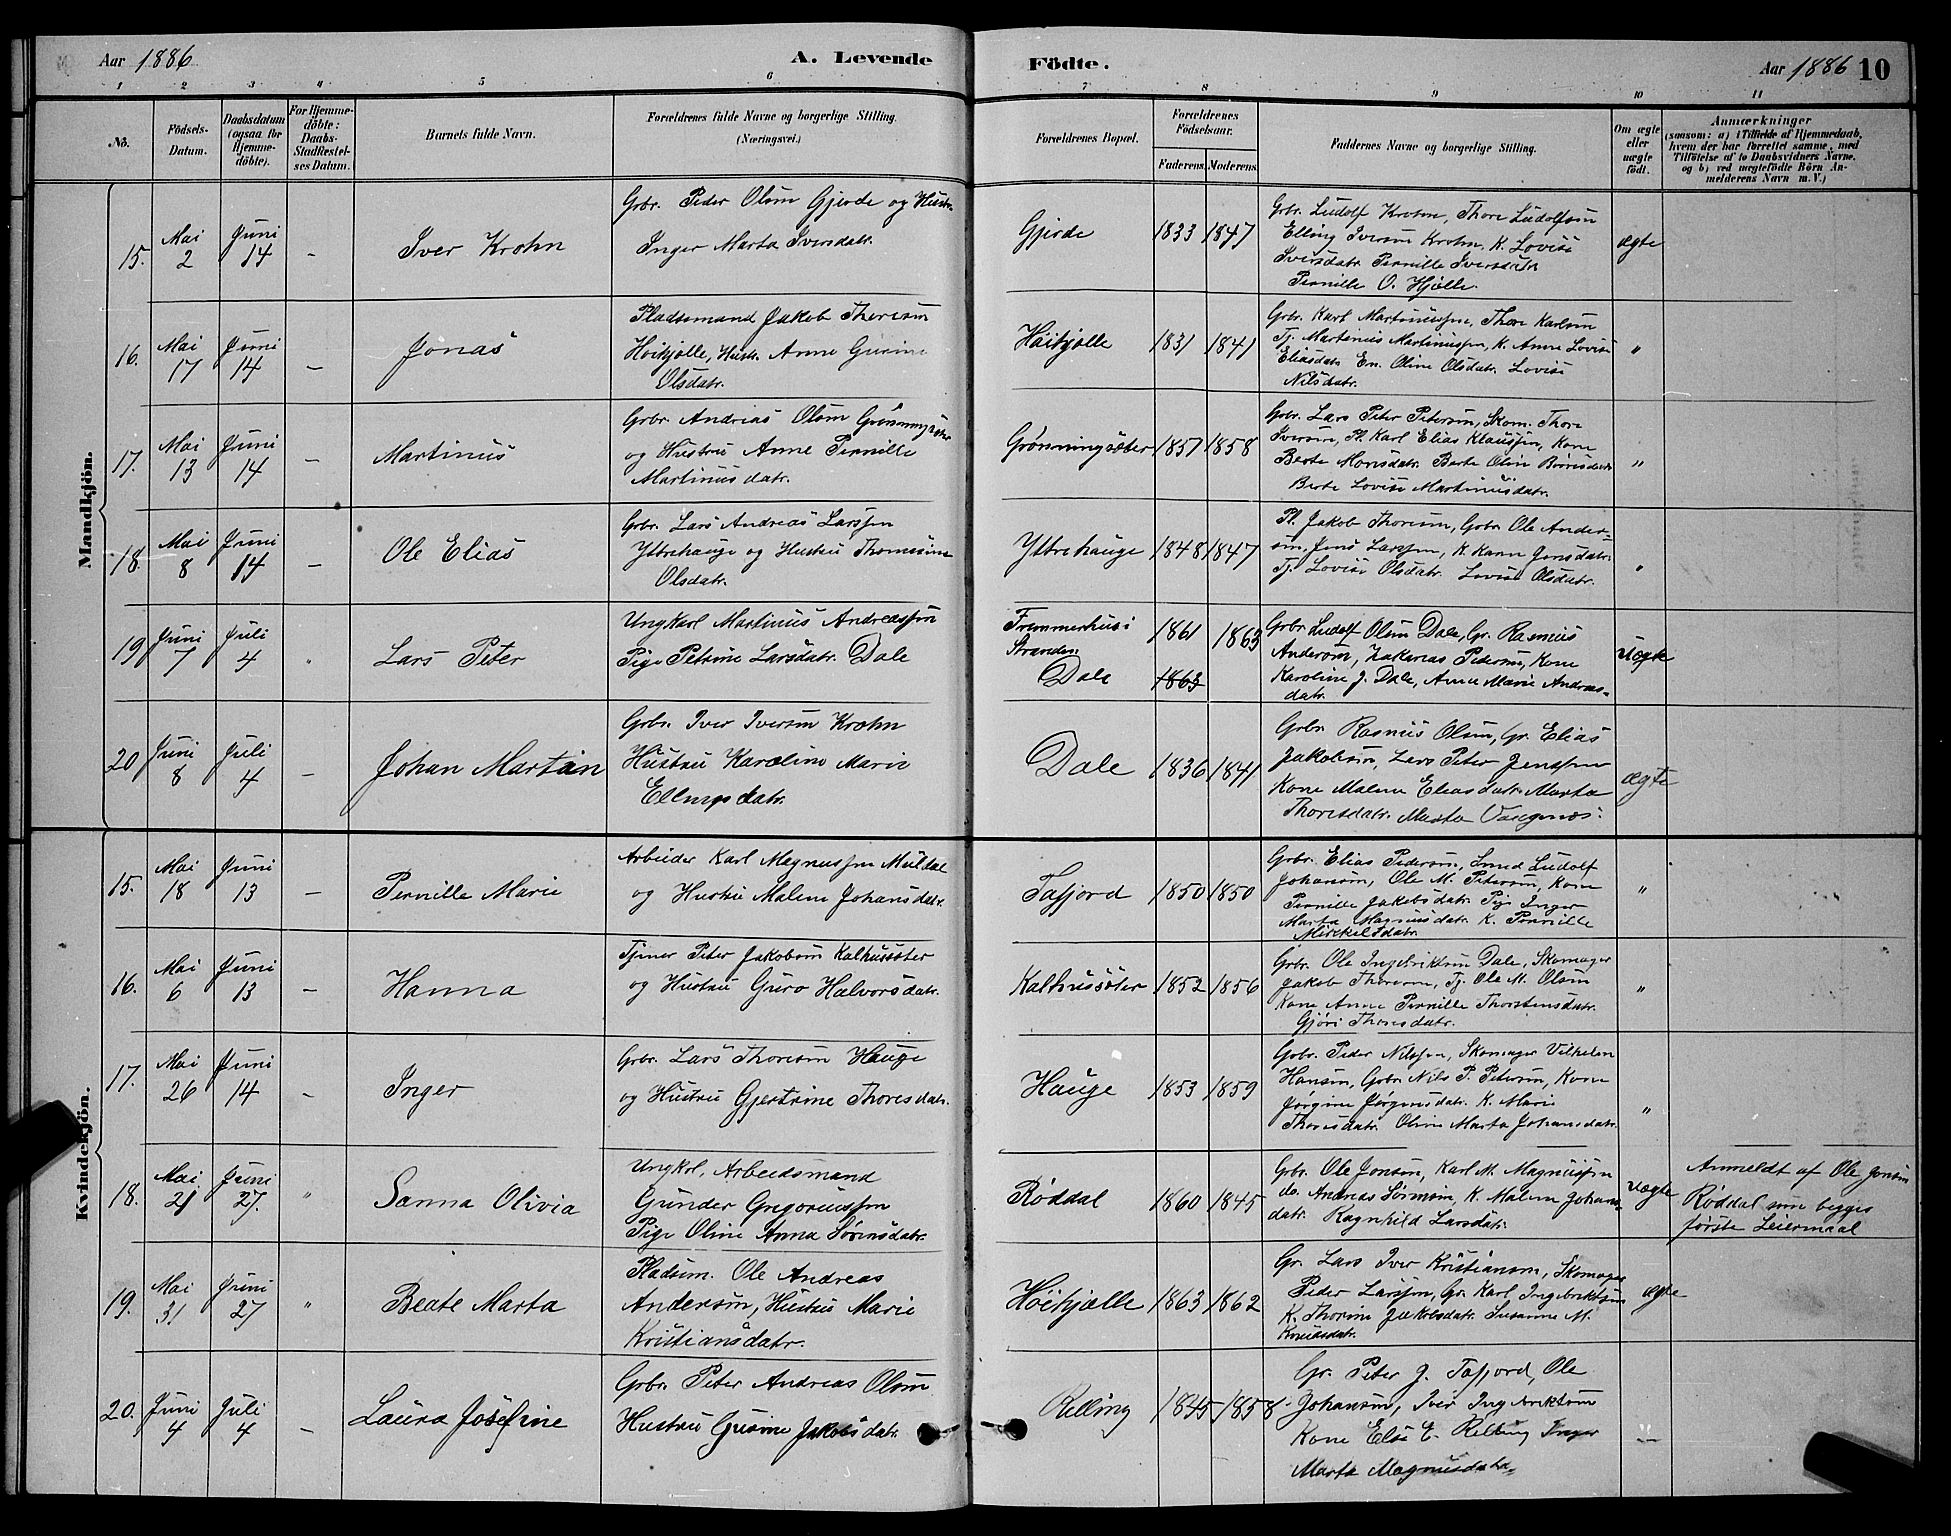 Aar 1886
A. Levende
Födte.
Aar 1886 10
1 2 3 4 5 6 7 8 9 10 11
No.
Födsels-
Datum.
Daabsdatum
(ogsaa for
Hjemme-
döbte).
For Hjemme-
döbte:
Daabs-
Stadfestel-
ses Datum.
Barnets fulde Navn.
Forældrenes fulde Navne og borgerlige Stilling.
(Næringsvei.)
Forældrenes Bopæl.
Forældrenes
Födselsaar.
Faderens. Moderens.
Faddernes Navne og borgerlige Stilling.
Om ægte
eller
uægte
födt.
Anmærkninger
(saasom: a) i Tilfælde af Hjemmedaab,
hvem der har forrettet samme, med
Tilföielse af to Daabsvidners Navne,
og b) ved uægtefödte Börn An-
melderens Navn m. V.)
Mandkjön.
15. Mai 2 Juni 14 – Iver Krohn
Gbr. Peder Olsen Gjerde og Hustr.
Inger Marta Iversdatr.
Gjerde 1833 1847
Gbr. Ludolf Krohn, Thore Ludolfsen
Elling Iversen Krohn, K. Lovise
Iversdatr. Pernille Iversdatr
Pernille O. Hjelle.
ægte
16. Mai 17 Juni 14 – Jonas
Pladsemand Jakob Thoresen
Höihjelle, Hustr. Anne Gurine
Olsdatr.
Höihjelle 1831 1841
Gbr. Karl Martinussen, Thore Karlsen
Tj. Martinus Martinussen, K. Anne Lovise
Eliasdatr. En. Oline Olsdatr. Lovise
Nilsdatr.
"
17. Mai 13 Juni 14 – Martinus
Gbr. Andreas Olsen Grönningsæter
og Hustru Anne Pernille
Martinusdatr.
Grönningsæter 1857 1858
Gbr. Lars Peter Petersen, Skom. Thore
Iversen, Pl. Karl Elias Klaussen, Kone
Berte Monsdatr. Berte Olive
Berte Lovise Martinusdatr.
"
18. Mai 8 Juni 14 – Ole Elias
Gbr. Lars Andreas Larssen
Ytrehauge og Hustru Thomine
Olsdatr.
Ytrehauge 1848 1847
Pl. Jakob Thoresen, Gbr. Ole Ander-
sen, Jens Larssen, K. Karen Jensdatr.
Tj. Lovise Olsdatr. Lovise Olsdatr.
"
19 Juni 7 Juli 4 " Lars Peter
Ungkarl Martinus Andreassen
Pige Petrine Larsdatr. Dale
Fremmerhus i
Stranden
Dale 1861 1863
1863
Gbr. Ludolf Olsen Dale, Gr. Rasmus
Andersen, Zakarias Pedersen, Kone
Karoline J. Dale, Anne Marie Andreas-
datr.
Uægte
20 Juni 8 Juli 4 – Johan Martin
Gbr. Iver Iversen Krohn
Hustru Karoline Marie
Ellingsdatr.
Dale 1836 1841
Gbr. Rasmus Olsen, Gr. Elias
Jakobsen, Lars Peter Jenssen
Kone Malene Eliasdatr. Marta
Thoresdatr. Marta
ægte
Kvindekjön.
15. Mai 18 Juni 13 – Pernille Marie
Arbeider Karl Magnussen Muldal
og Hustru Malene Johansdatr.
Tafjord 1850 1850
Gbr. Elias Pedersen, Smed Ludolf
Johansen, Ole M. Petersen, Kone
Pernille Jakobsdatr. Pige Inger
Marta Magnusdatr. K. Pernille
Mikkelsdatr.
"
16. Mai 6 Juni 13 – Hanna
Tjener Peter Jakobsen Kalhussæter
og Hustru Guro Halvorsdatr.
Kalhussæter 1852 1856
Gbr. Ole Ingebriktsen Dale, Skomager
Jakob Thoresen, Tj. Ole M. Olsen
Kone Anne Pernille Thorstensdatr.
Gjöri Thoresdatr.
"
17. Mai 26 Juni 14 – Inger
Gbr. Lars Thoresen Hauge
og Hustru Gjertrine Thoresdatr.
Hauge 1853 1859
Gbr. Peder Nilssen, Skomager Vilhelm
Hansen, Gbr. Nils P. Petersen, Kone
Jörgine Jörgensdatr. K. Marie
Thoresdatr. Oline Marta Johansdatr.
"
18. Mai 21 Juni 27. " Sanna Olivia
Ungkrl, Arbeidsmand
Gunder Gregoriussen
Pige Oline Anna Sörensdatr.
Röddal 1860 1845
Gbr. Ole Jonsen, Karl M. Magnussen
do. Andreas Sörensen, K. Malene Johans-
datr. Ragnhild Larsdatr.
Uægte
Anmeldt af Ole Jonsen
Röddal som begges
förste Leiermaal
19. Mai 31 Juni 27 " Beate Marta
Pladsem. Ole Andreas
Andersen, Hustru Marie
Kristiansdatr.
Höihjelle 1863 1862
Gr. Lars Iver Kristiansen, Skomager
Peder Larssen, Gr. Karl Ingebriktsen
K. Thorine Jakobsdatr. Susanne M.
Knudsdatr.
ægte
20. Juni 4 Juli 4 – Laura Josefine
Gbr. Peter Andreas Olsen
Hustru Gurine Jakobsdatr.
Relling 1845 1858
Gr. Peter J. Tafjord, Ole
Johansen, Iver Ingebriktsen
Kone Else E. Relling Inger
Marta Magnusdatr.
–